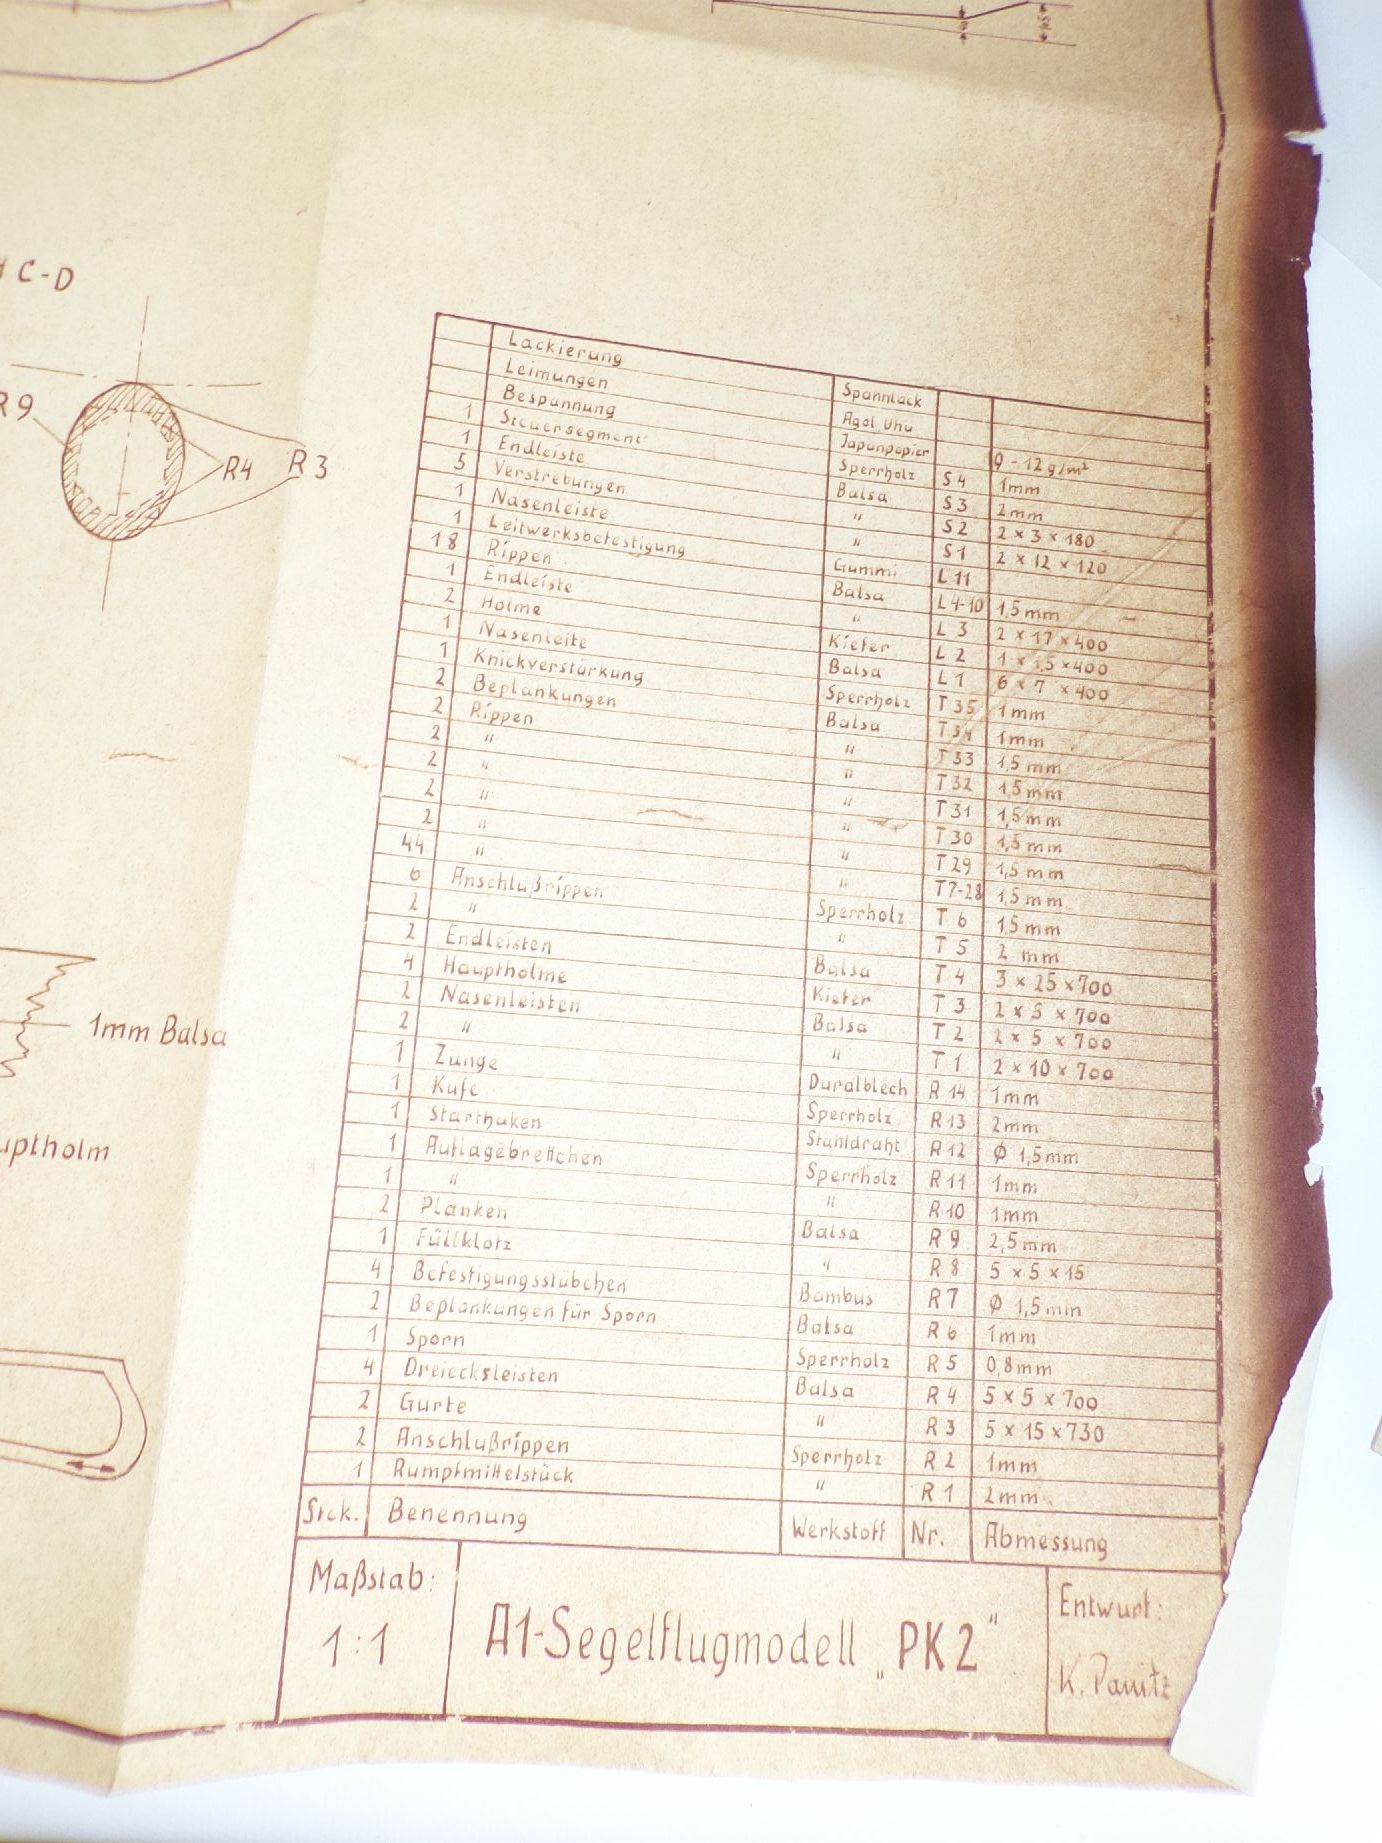 C-D
R9
R4
R3
1mm Balsa
uptholm
Lackierung Spannlack
Leimungen Agol, Uhu
Bespannung Japanpapier 9 - 12 g/m²
1 Steuersegment Sperrholz S 4 1mm
1 Endleiste Balsa S 3 2mm
5 Verstrebungen " S 2 2 × 3 × 180
1 Nasenleiste " S 1 2 × 12 × 120
1 Leitwerksbefestigung Gummi L 11
18 Rippen Balsa L 4-10 1,5mm
1 Endleiste " L 3 2 × 17 × 400
2 Holme Kiefer L 2 1 × 1,5 × 400
1 Nasenleite Balsa L 1 6 × 7 × 400
1 Knickverstärkung Sperrholz T 35 1mm
2 Beplankungen Balsa T 34 1mm
2 Rippen " T 33 1,5 mm
2 " " T 32 1,5 mm
2 " " T 31 1,5 mm
2 " " T 30 1,5 mm
2 " " T 29 1,5 mm
44 " " T 7-28 1,5 mm
6 Anschlußrippen Sperrholz T 6 1,5 mm
2 " " T 5 2 mm
2 Endleisten Balsa T 4 3 × 25 × 700
4 Hauptholme Kiefer T 3 2 × 5 × 700
2 Nasenleisten Balsa T 2 2 × 5 × 700
2 " " T 1 2 × 10 × 700
1 Zunge Duralblech R 14 1mm
1 Kufe Sperrholz R 13 2mm
1 Starthaken Stahldraht R 12 Ø 1,5mm
1 Auflagebrettchen Sperrholz R 11 1mm
1 " " R 10 1mm
2 Planken Balsa R 9 2,5mm
1 Füllklotz " R 8 5 × 5 × 15
4 Befestigungsstäbchen Bambus R 7 Ø 1,5mm
2 Beplankungen für Sporn Balsa R 6 1mm
1 Sporn Sperrholz R 5 0,8mm
4 Dreiecksleisten Balsa R 4 5 × 5 × 700
2 Gurte " R 3 5 × 15 × 730
2 Anschlußrippen Sperrholz R 2 1mm
1 Rumpfmittelstück " R 1 2mm
Stck. Benennung Werkstoff Nr. Abmessung
Maßstab:
1:1
A1-Segelflugmodell „PK 2"
Entwurf:
K. Panitz